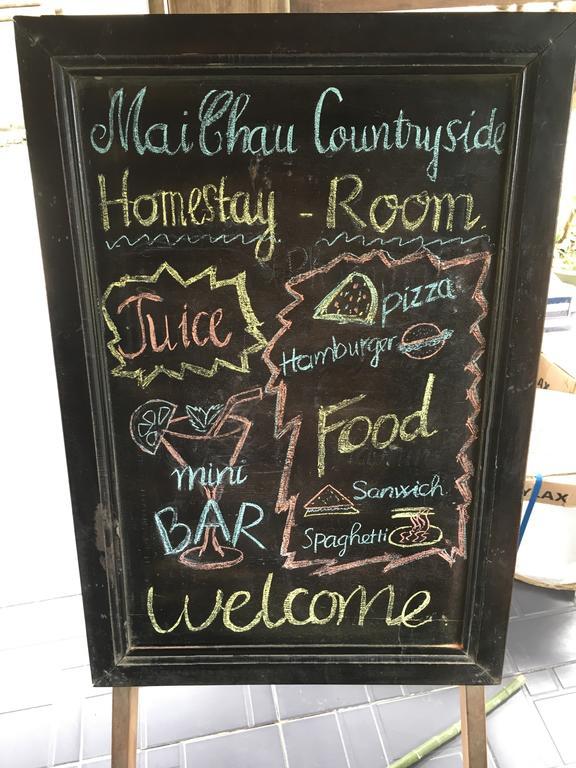 Mai Chau Countryside
Homestay - Room
Juice
pizza
Hamburger
Food
mini
BAR
Sanwich
Spaghetti
Welcome
LAX